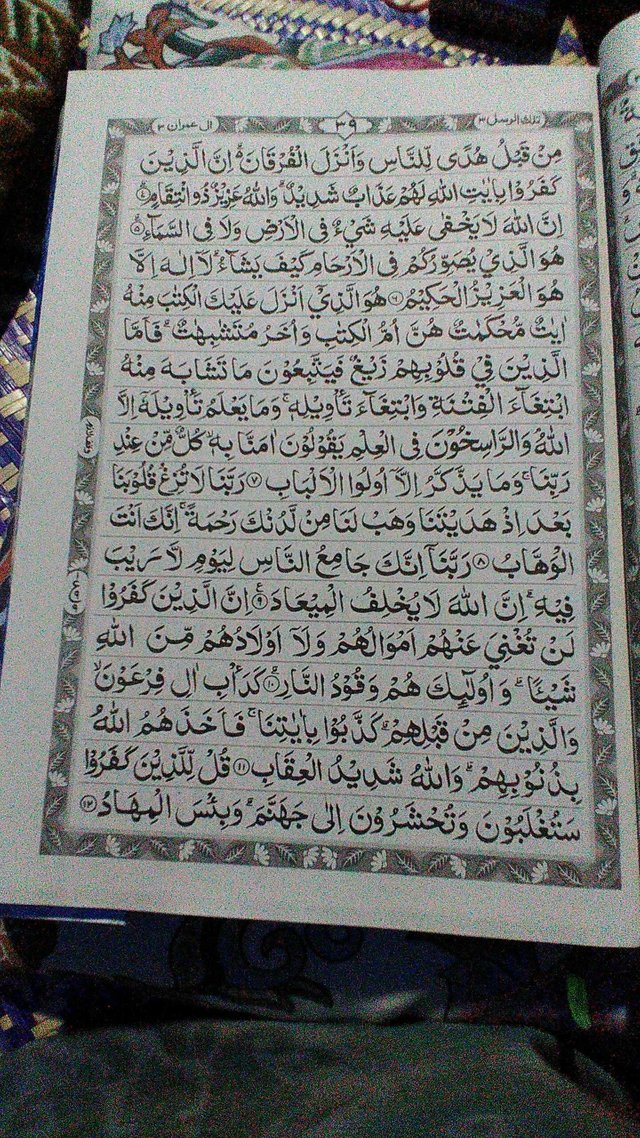 تلك الرسل ٣
٣٩
اٰل عمران ٣
مِنْ قَبْلُ هُدًى لِّلنَّاسِ وَاَنْزَلَ الْفُرْقَانَ ۬ؕ اِنَّ الَّذِيْنَ
كَفَرُوْا بِاٰيٰتِ اللّٰهِ لَهُمْ عَذَابٌ شَدِيْدٌ ؕ وَاللّٰهُ عَزِيْزٌ ذُو انْتِقَامٍ ؕ﴿۴﴾
اِنَّ اللّٰهَ لَا يَخْفٰى عَلَيْهِ شَيْءٌ فِى الْاَرْضِ وَلَا فِى السَّمَآءِ ؕ﴿۵﴾
هُوَ الَّذِيْ يُصَوِّرُكُمْ فِى الْاَرْحَامِ كَيْفَ يَشَآءُ ؕ لَاۤ اِلٰهَ اِلَّا
هُوَ الْعَزِيْزُ الْحَكِيْمُ ﴿۶﴾ هُوَ الَّذِيْۤ اَنْزَلَ عَلَيْكَ الْكِتٰبَ مِنْهُ
اٰيٰتٌ مُّحْكَمٰتٌ هُنَّ اُمُّ الْكِتٰبِ وَاُخَرُ مُتَشٰبِهٰتٌ ؕ فَاَمَّا
الَّذِيْنَ فِيْ قُلُوْبِهِمْ زَيْغٌ فَيَتَّبِعُوْنَ مَا تَشَابَهَ مِنْهُ
ابْتِغَآءَ الْفِتْنَةِ وَابْتِغَآءَ تَاْوِيْلِهٖ ۚ وَمَا يَعْلَمُ تَاْوِيْلَهٗۤ اِلَّا
اللّٰهُ وَالرَّاسِخُوْنَ فِى الْعِلْمِ يَقُوْلُوْنَ اٰمَنَّا بِهٖ ۙ كُلٌّ مِّنْ عِنْدِ
رَبِّنَا ۚ وَمَا يَذَّكَّرُ اِلَّاۤ اُولُوا الْاَلْبَابِ ﴿۷﴾ رَبَّنَا لَا تُزِغْ قُلُوْبَنَا
بَعْدَ اِذْ هَدَيْتَنَا وَهَبْ لَنَا مِنْ لَّدُنْكَ رَحْمَةً ۚ اِنَّكَ اَنْتَ
الْوَهَّابُ ﴿۸﴾ رَبَّنَاۤ اِنَّكَ جَامِعُ النَّاسِ لِيَوْمٍ لَّا رَيْبَ
فِيْهِ ؕ اِنَّ اللّٰهَ لَا يُخْلِفُ الْمِيْعَادَ ﴿۹﴾ اِنَّ الَّذِيْنَ كَفَرُوْا
لَنْ تُغْنِيَ عَنْهُمْ اَمْوَالُهُمْ وَلَاۤ اَوْلَادُهُمْ مِّنَ اللّٰهِ
شَيْئًا ؕ وَاُولٰٓئِكَ هُمْ وَقُوْدُ النَّارِ ﴿۱۰﴾ كَدَاْبِ اٰلِ فِرْعَوْنَ ۙ
وَالَّذِيْنَ مِنْ قَبْلِهِمْ ؕ كَذَّبُوْا بِاٰيٰتِنَا ۚ فَاَخَذَهُمُ اللّٰهُ
بِذُنُوْبِهِمْ ؕ وَاللّٰهُ شَدِيْدُ الْعِقَابِ ﴿۱۱﴾ قُلْ لِّلَّذِيْنَ كَفَرُوْا
سَتُغْلَبُوْنَ وَتُحْشَرُوْنَ اِلٰى جَهَنَّمَ ؕ وَبِئْسَ الْمِهَادُ ﴿۱۲﴾